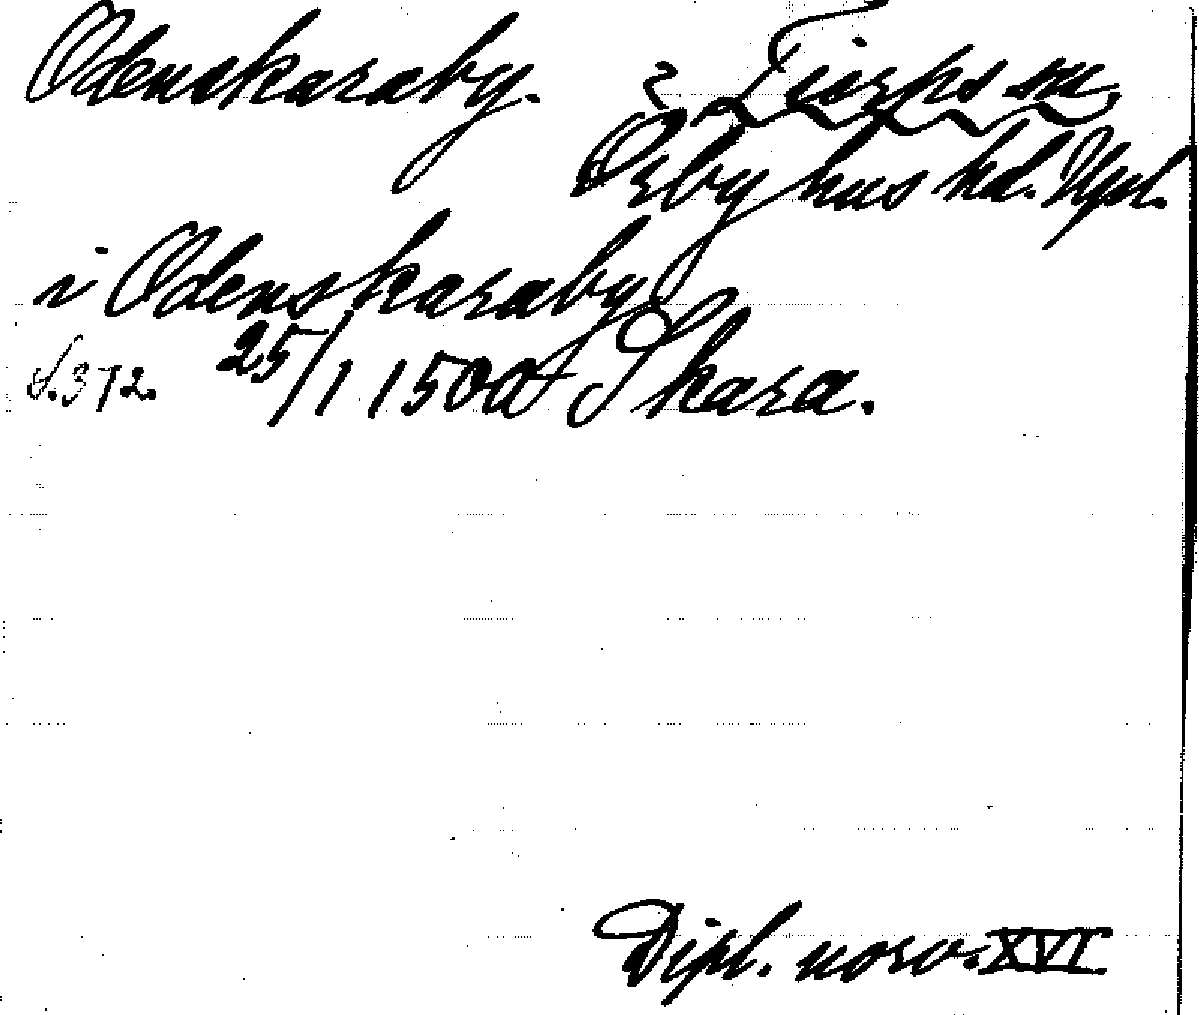 Odenskaraby. ? Tierps sn,
Örbyhus hd. Uppl.
i Odenskaraby
S. 372. 25/1 1500 Skara.
Dipl. norv. XVI